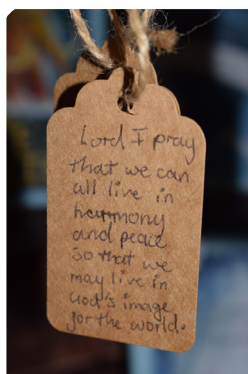 Lord I pray
that we can
all live in
harmony
and peace
so that we
may live in
God's image
for the world.